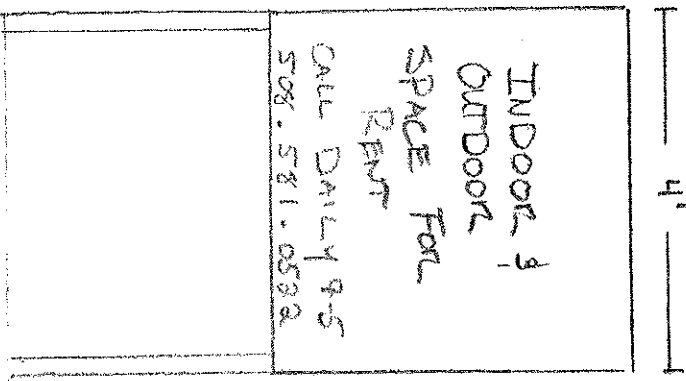 INDOOR &
OUTDOOR
SPACE FOR
RENT
CALL DAILY 9-5
508.581.0532
4'